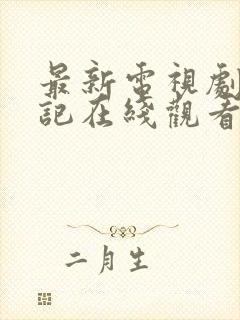 最新電視劇
記在綫觀看
二月生